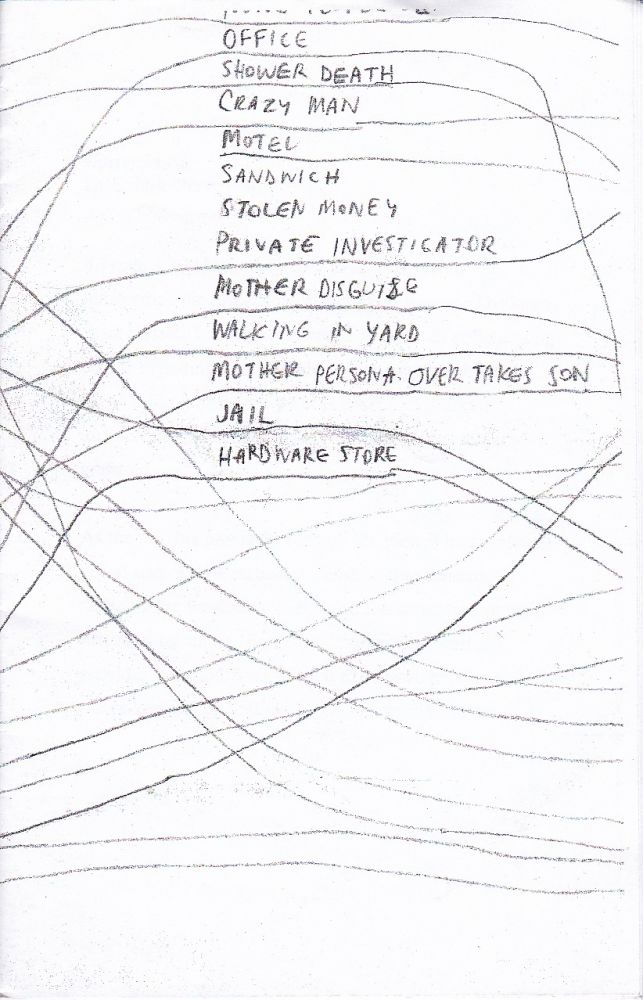 OFFICE
SHOWER DEATH
CRAZY MAN
MOTEL
SANDWICH
STOLEN MONEY
PRIVATE INVESTIGATOR
MOTHER DISGUISE
WALKING IN YARD
MOTHER PERSONA OVER TAKES SON
JAIL
HARDWARE STORE